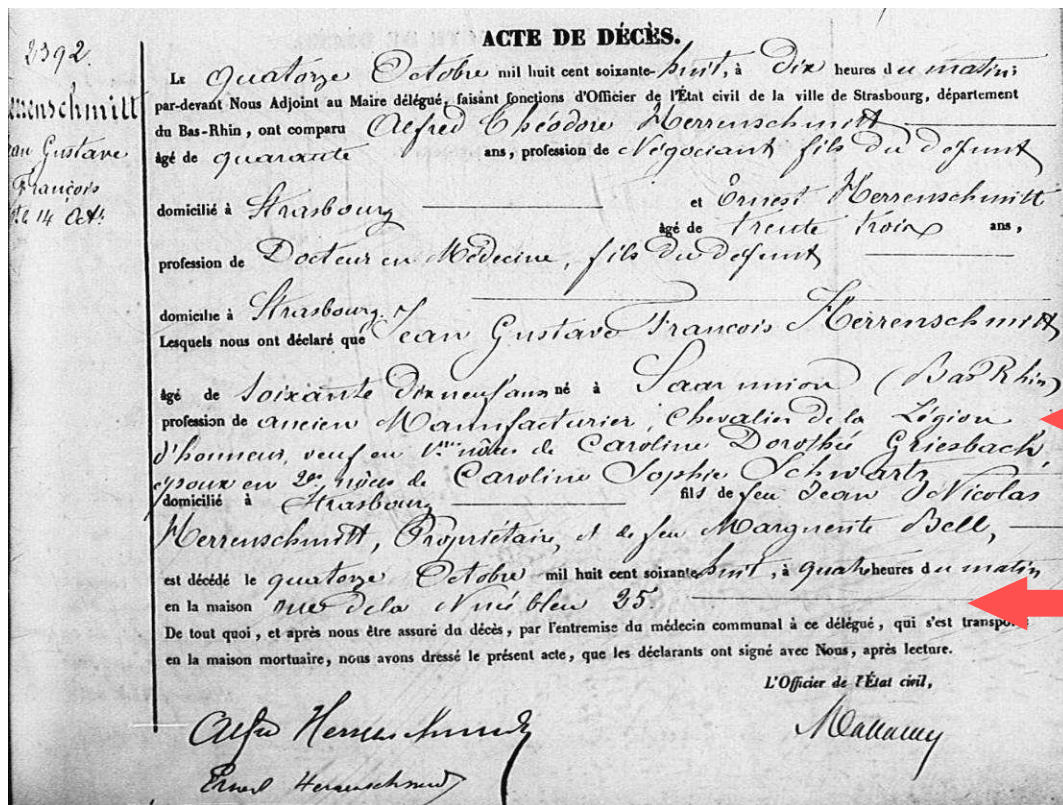 2392.
ACTE DE DÉCÈS.
Le quatorze Octobre mil huit cent soixante-huit, à Dix heures du matin;
errenschmitt
par-devant Nous Adjoint au Maire délégué, faisant fonctions d'Officier de l'État civil de la ville de Strasbourg, département
du Bas-Rhin, ont comparu Alfred Théodore Herrenschmitt
an Gustave
âgé de quarante ans, profession de Négociant fils du défunt
François
domicilié à Strasbourg et Ernest Herrenschmitt
14 Oct.
âgé de trente trois ans,
profession de Docteur en Médecine, fils du défunt
domicilié à Strasbourg.
Lesquels nous ont déclaré que Jean Gustave François Herrenschmitt
âgé de soixante dix neuf ans né à Saar union (Bas Rhin)
profession de ancien Manufacturier, Chevalier de la Légion
d'honneur, veuf en 1res nôces de Caroline Dorothé Griesbach,
époux en 2es nôces de Caroline Sophie Schwartz
domicilié à Strasbourg fils de feu Jean Nicolas
Herrenschmitt, Propriétaire, et de feu Marguerite Bell,
est décédé le quatorze Octobre mil huit cent soixante huit, à quatre heures du matin
en la maison rue de la Nuée bleu 25.
De tout quoi, et après nous être assuré du décès, par l'entremise du médecin communal à ce délégué, qui s'est transporté
en la maison mortuaire, nous avons dressé le présent acte, que les déclarants ont signé avec Nous, après lecture.
L'Officier de l'État civil,
Alfred Herrenschmidt
Ernest Herrenschmidt